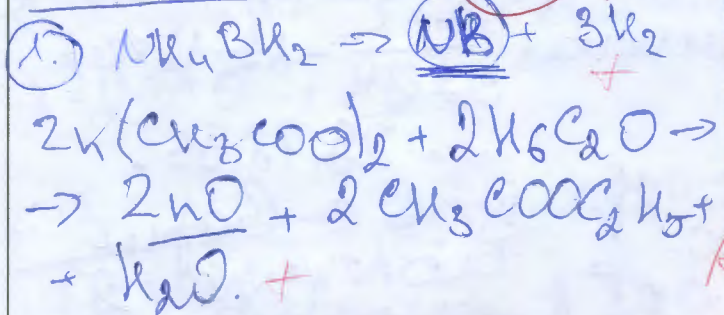 1. NH4BH2 → NB + 3H2
+
Zn(CH3COO)2 + 2H6C2O →
→ ZnO + 2CH3COOC2H5 +
+ H2O. +